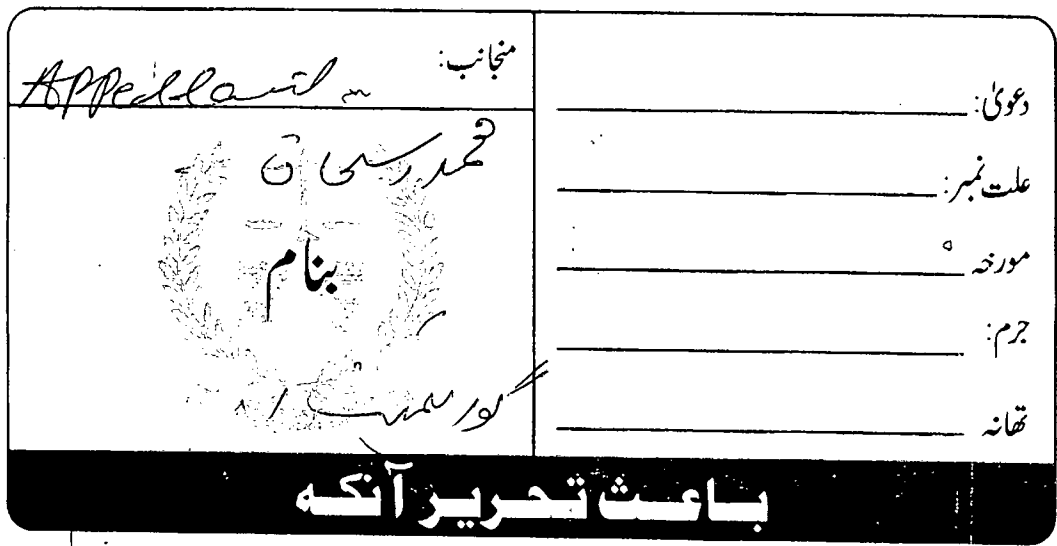 دعویٰ:
علت نمبر:
مورخہ
جرم:
تھانہ
منجانب:
Appellant
محمد اسحاق
بنام
گورنمنٹ
باعث تحریر آنکہ